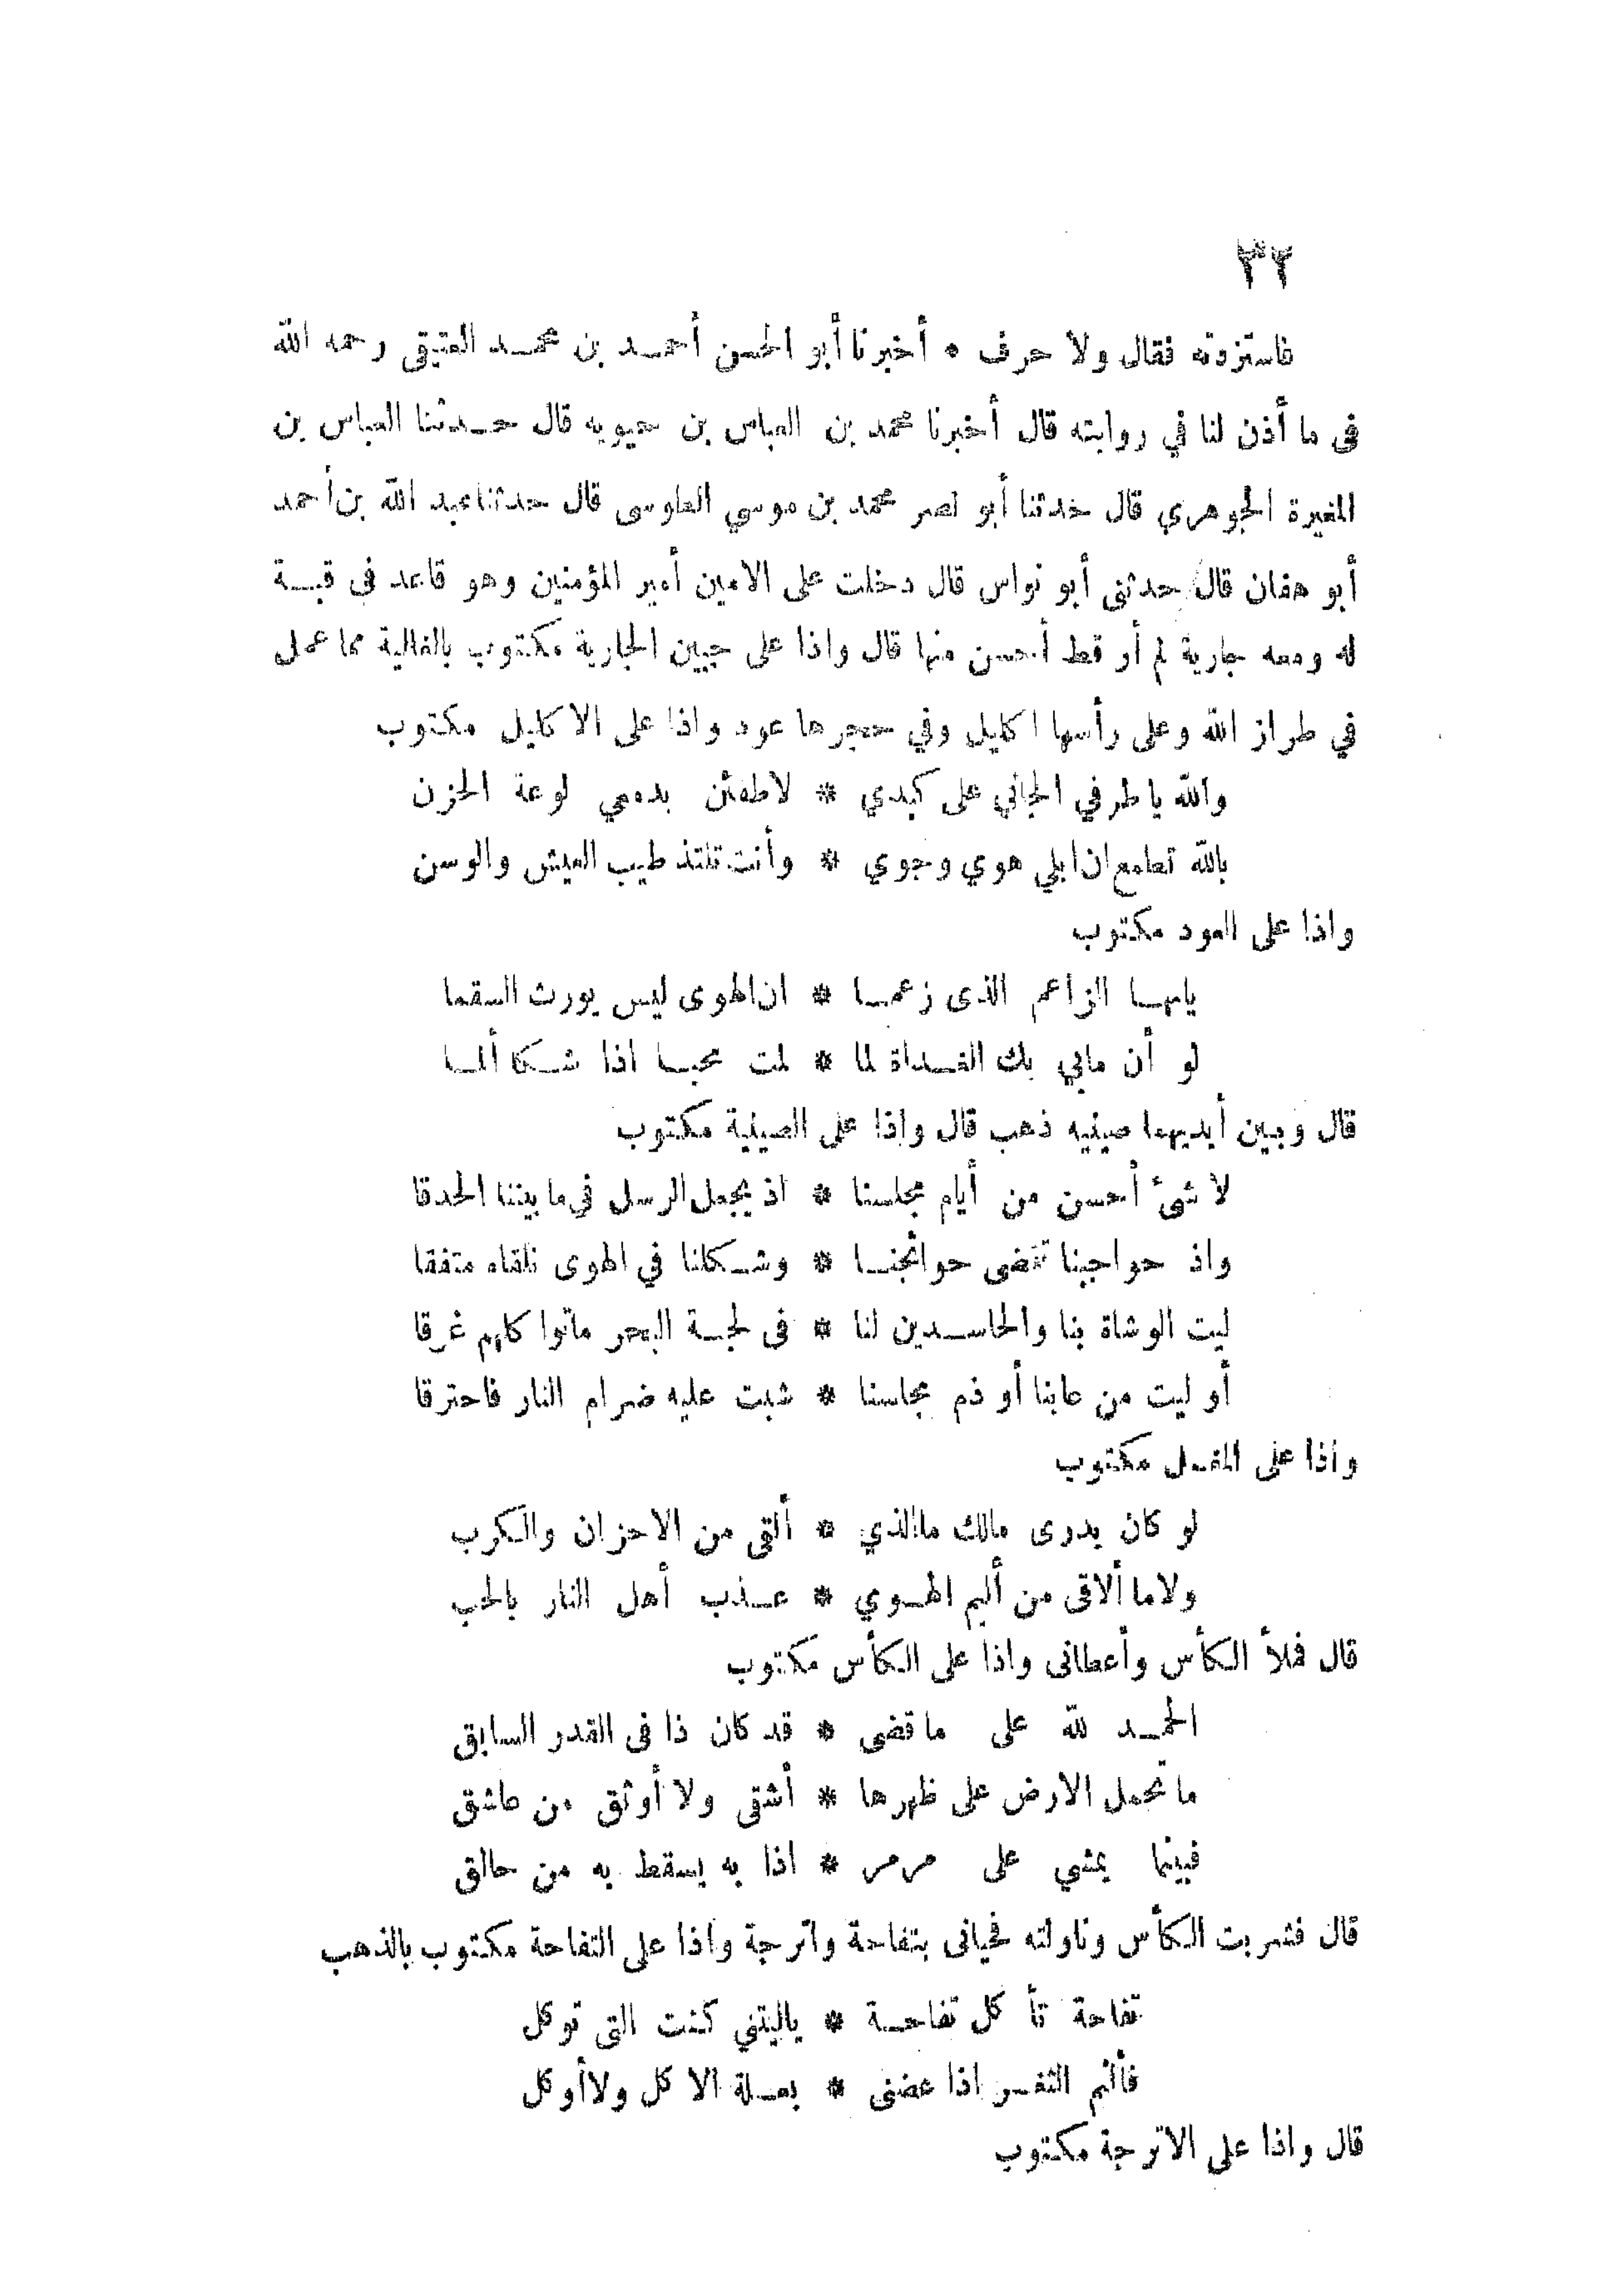 ٣٢
فاستزدته فقال ولا حرف * أخبرنا أبو الحسن أحمد بن محمد العتيقى رحمه الله
فى ما أذن لنا في روايته قال أخبرنا محمد بن العباس بن حيويه قال حدثنا العباس بن
المغيرة الجوهري قال حدثنا أبو نصر محمد بن موسي الطوسى قال حدثنا عبد الله بن أحمد
أبو هفان قال حدثنى أبو نواس قال دخلت على الامين أمير المؤمنين وهو قاعد فى قبة
له ومعه جارية لم أر قط أحسن منها قال واذا على جبين الجارية مكتوب بالغالية مما عمل
في طراز الله وعلى رأسها اكليل وفي حجرها عود واذا على الاكليل مكتوب
والله ياطرفي الجاني على كبدي * لاطفئن بدمعي لوعة الحزن
بالله تطمع ان ابلي هوي وجوي * وأنت تلتذ طيب العيش والوسن
واذا على العود مكتوب
يايها الزاعم الذى زعما * ان الهوى ليس يورث السقما
لو أن مابي بك الغداة لما * لمت محبا اذا شكا ألما
قال وبين أيديهما صينيه ذهب قال واذا على الصينية مكتوب
لا شئ أحسن من أيام مجلسنا * اذ يجعل الرسل في ما بيننا الحدقا
واذ حواجبنا تقضى حوائجنا * وشكلنا في الهوى نلقاه متفقا
ليت الوشاة بنا والحاسدين لنا * فى لجة البحر ماتوا كلهم غرقا
أو ليت من عابنا أو ذم مجلسنا * شبت عليه ضرام النار فاحترقا
واذا على المغسل مكتوب
لو كان يدرى مالك ماالذي * ألقى من الاحزان والكرب
ولاما ألاقى من أليم الهوي * عذب أهل النار بالحب
قال فملأ الكأس وأعطانى واذا على الكأس مكتوب
الحمد لله على ماقضى * قد كان ذا فى القدر السابق
ما تحمل الارض على ظهرها * أشقى ولا أوثق من عاشق
فبينما يمشي على مرمر * اذا به يسقط به من حالق
قال فشربت الكأس وناولته فحيانى بتفاحة واترجة واذا على التفاحة مكتوب بالذهب
تفاحة تأكل تفاحة * ياليتني كنت التى توكل
فألثم الثغر اذا عضنى * بعلة الاكل ولا أوكل
قال واذا على الاترجة مكتوب